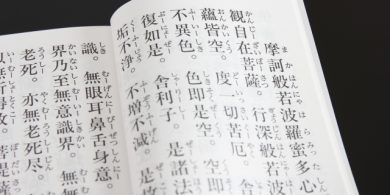 摩訶般若波羅蜜多心
観自在菩薩。行深般若
蘊皆空。度一切苦厄。
不異色。色即是空。空
復如是。舎利子。是諸法
垢不浄。不増不減。是
識。無眼耳鼻舌身意。
界乃至無意識界。無
老死。亦無老死尽。
得故。菩提